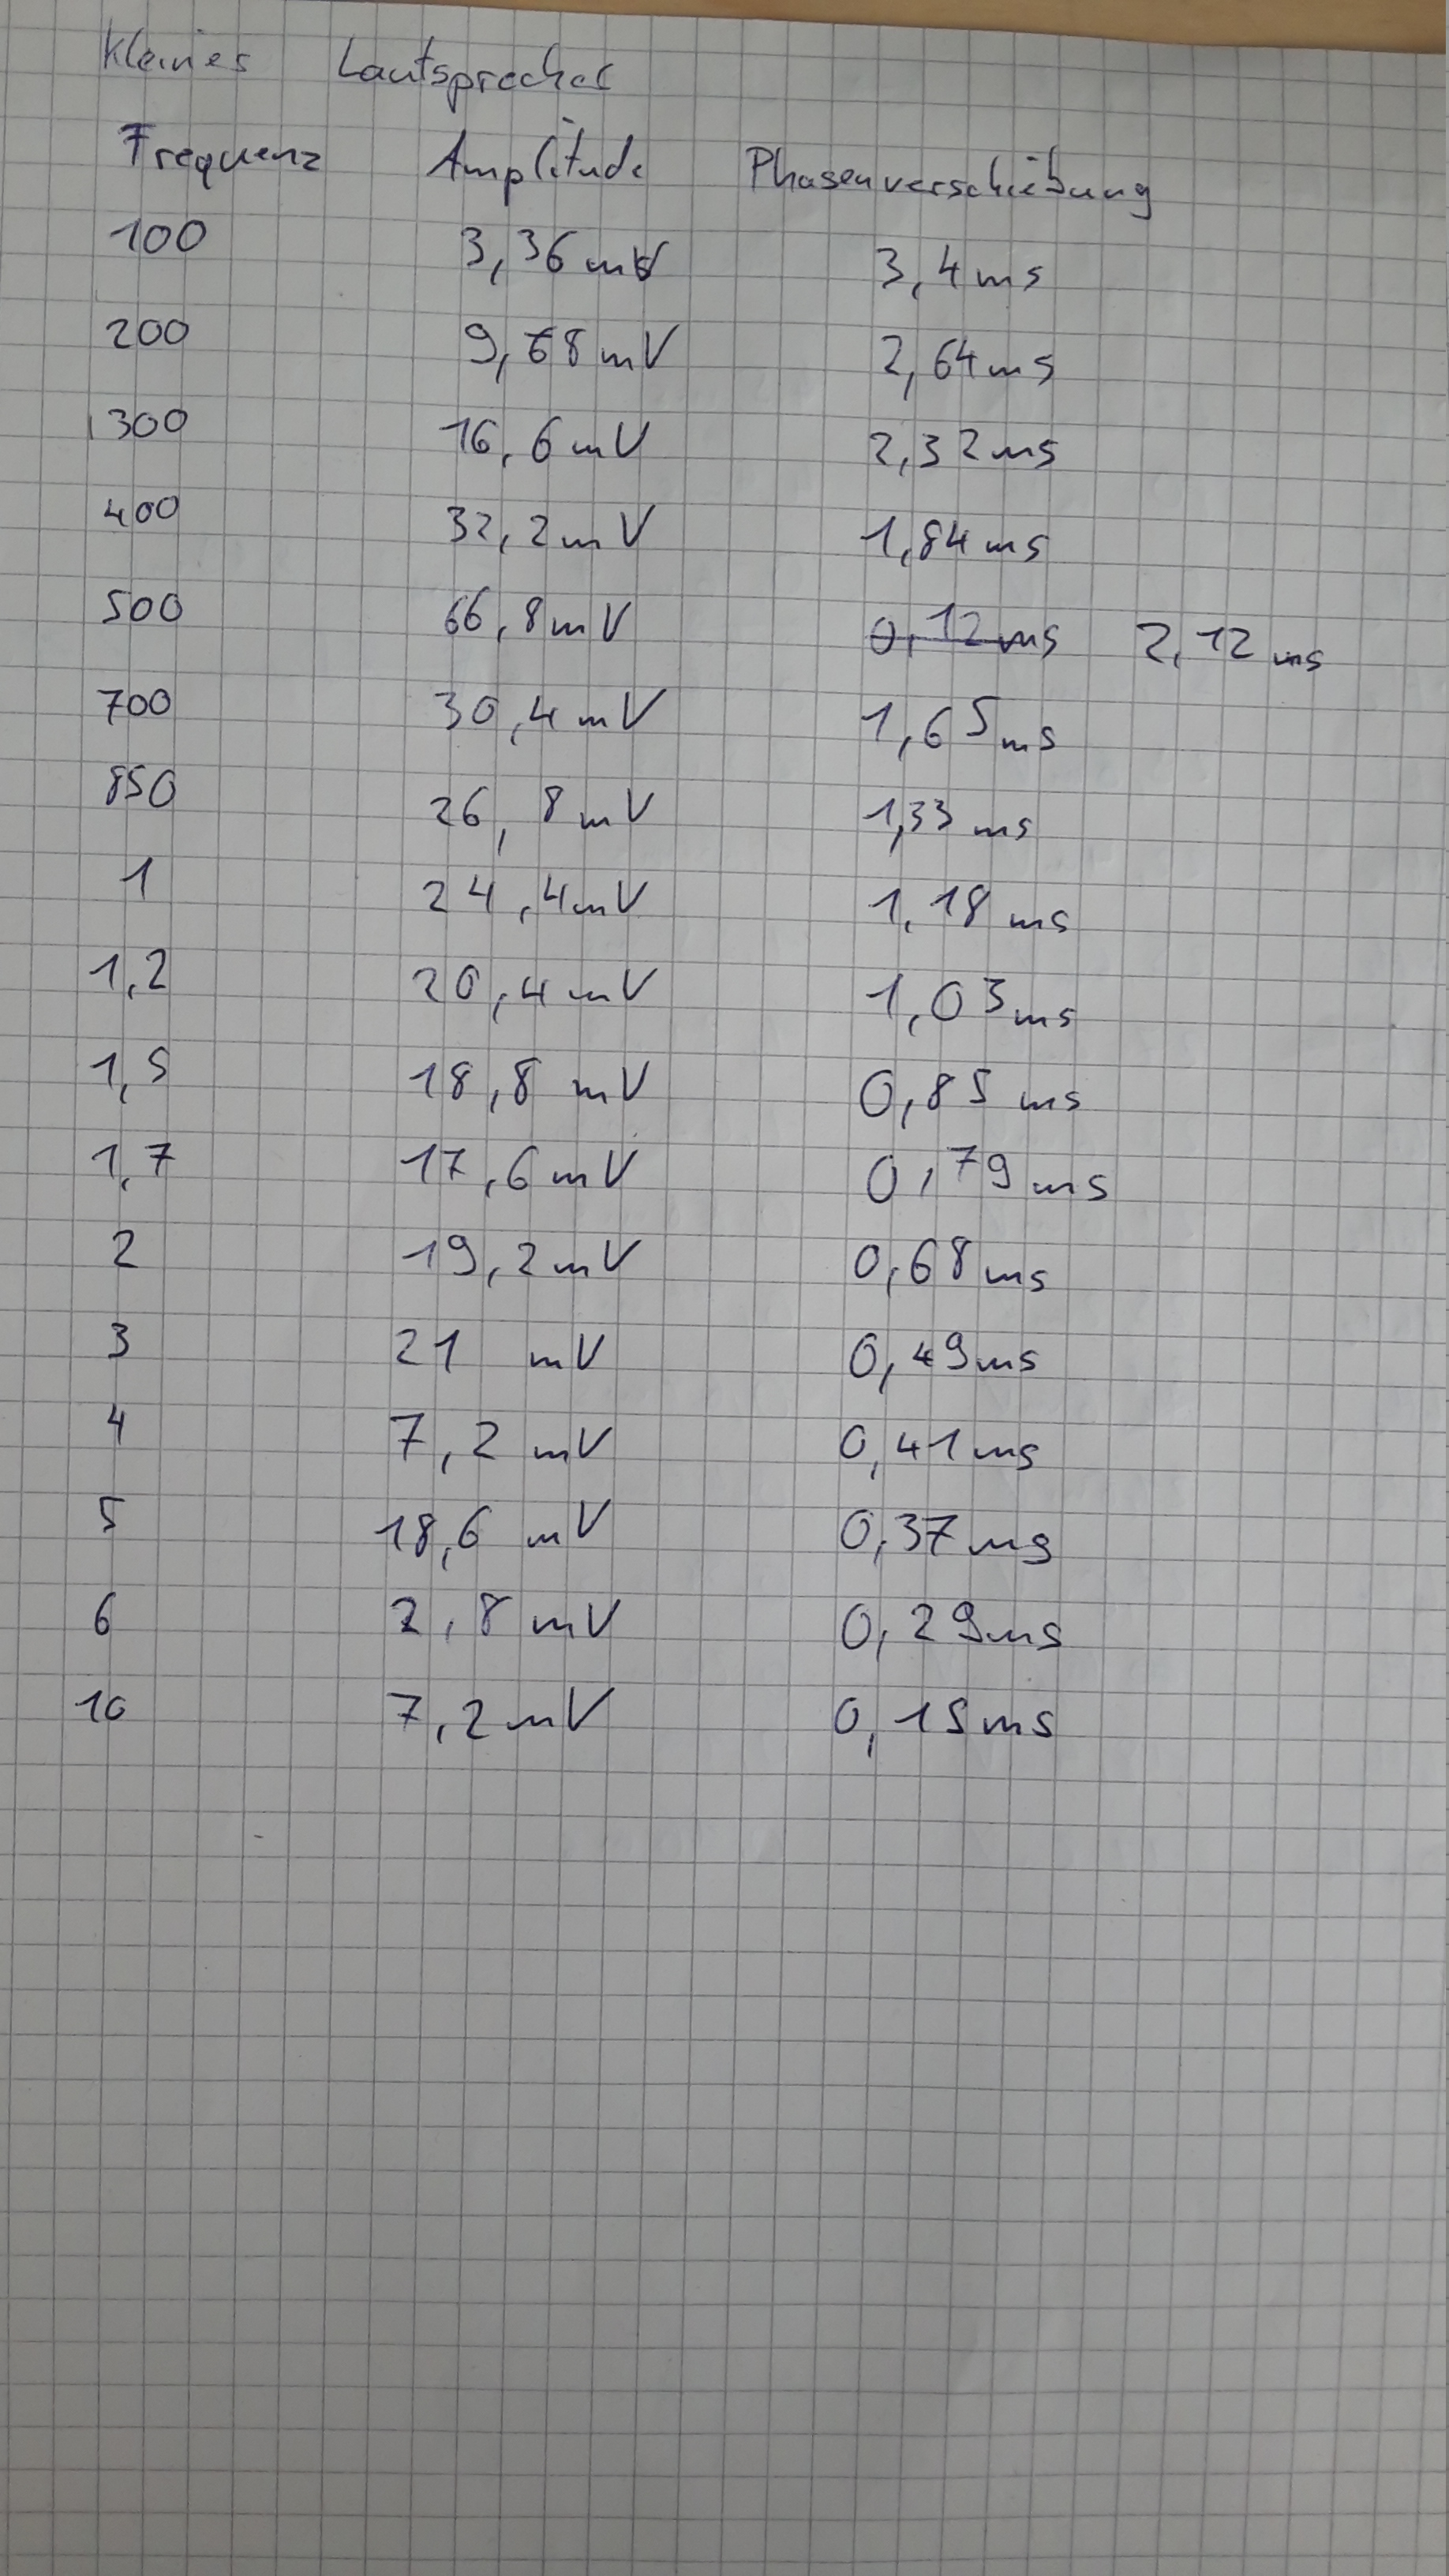 kleines Lautsprecher
Frequenz Amplitude Phasenverschiebung
100 3,36 mV 3,4 ms
200 9,68 mV 2,64 ms
300 16,6 mV 2,32 ms
400 32,2 mV 1,84 ms
500 66,8 mV 0,12 ms 2,12 ms
700 30,4 mV 1,65 ms
850 26,8 mV 1,33 ms
1 24,4 mV 1,18 ms
1,2 20,4 mV 1,03 ms
1,5 18,8 mV 0,85 ms
1,7 17,6 mV 0,79 ms
2 19,2 mV 0,68 ms
3 21 mV 0,49 ms
4 7,2 mV 0,41 ms
5 18,6 mV 0,37 ms
6 2,8 mV 0,29 ms
10 7,2 mV 0,15 ms